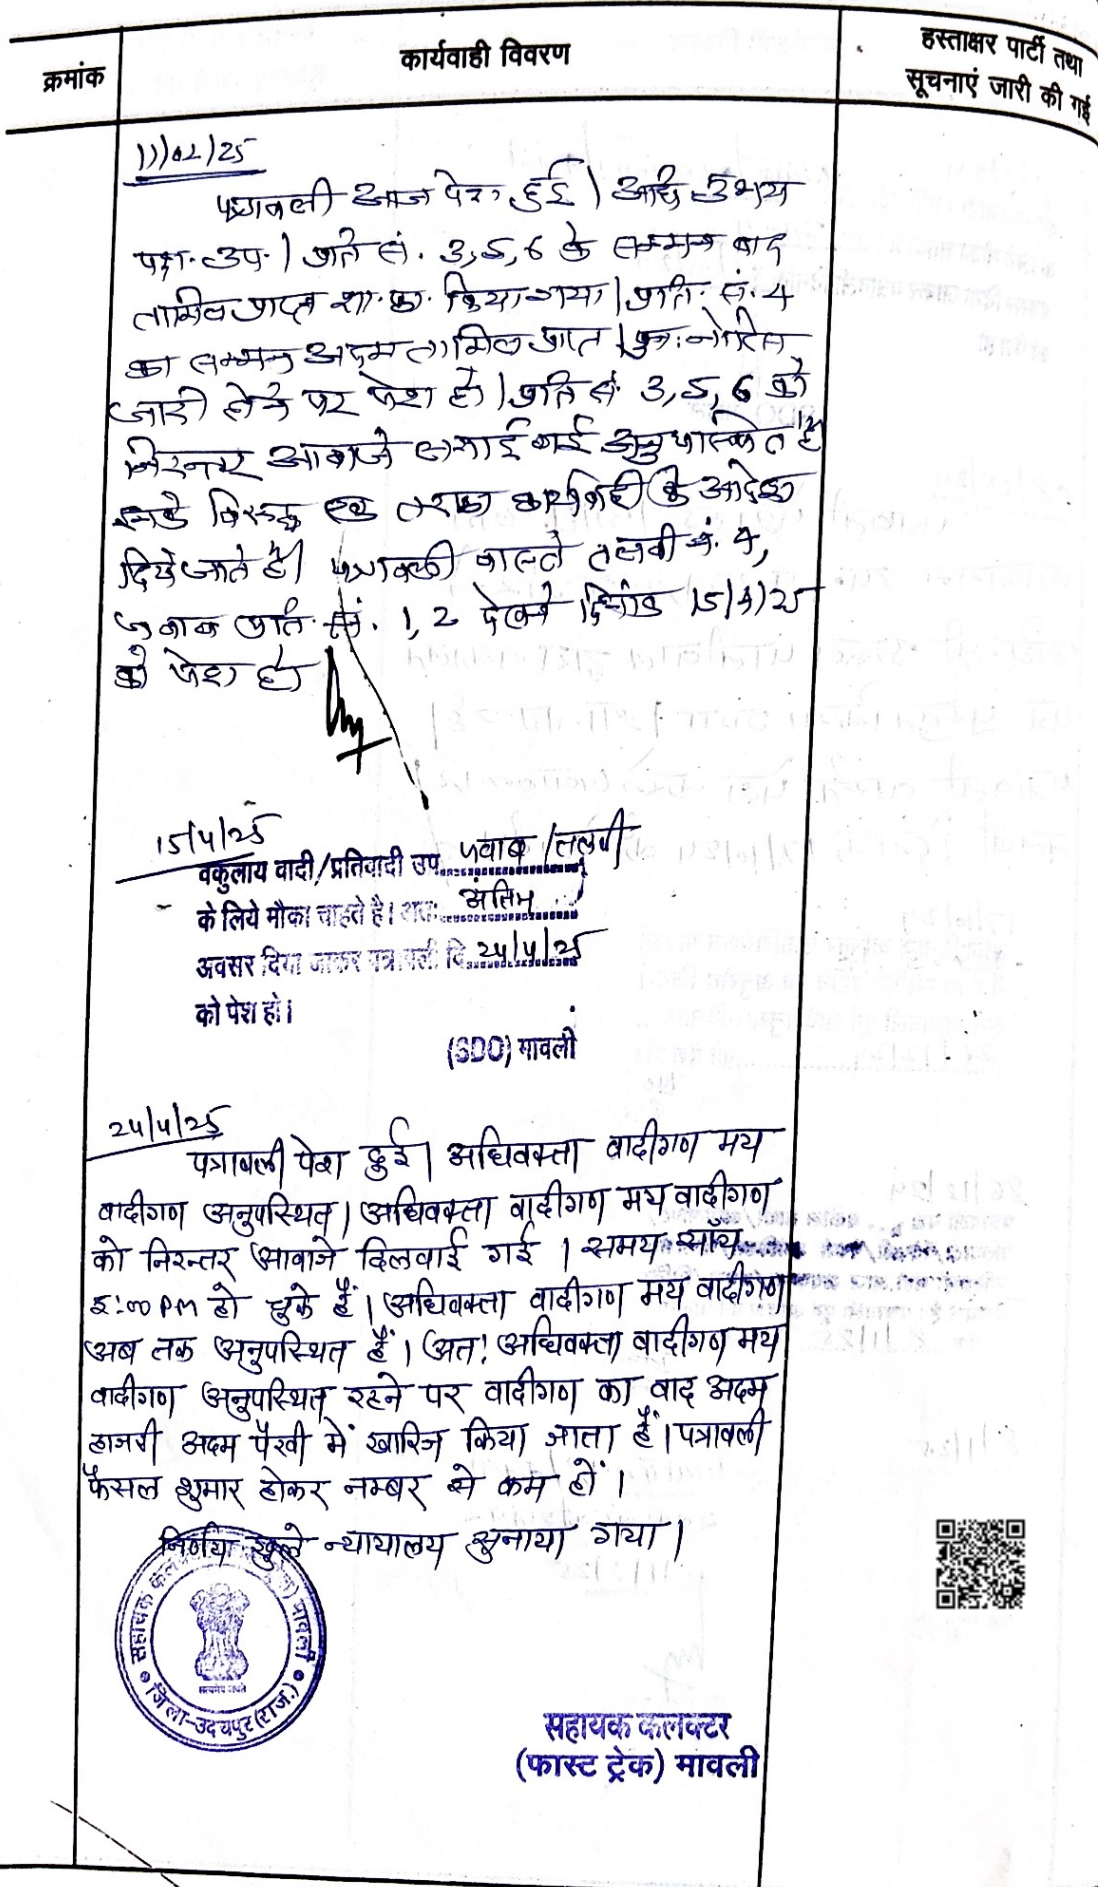 क्रमांक
कार्यवाही विवरण
हस्ताक्षर पार्टी तथा
सूचनाएं जारी की गई
11/02/25
पत्रावली आज पेश हुई। अधि. उभय
पक्ष उप.। प्रति सं. 3,5,6 के सम्मन बाद
तामिल प्राप्त शा. फा. किया गया। प्रति. सं. 4
का सम्मन अदम तामिल प्राप्त। पुनः नोटिस
जारी होने पर पेश हो। प्रति सं 3,5,6 को
निरन्तर आवाजे लगाई गई अनुपास्थित है
इनके विरूद्ध एक तरफा कार्यवाही के आदेश
दिये जाते है। पत्रावली वास्ते तलबी सं. 4,
जवाब प्रति. सं. 1,2 देखने दिनांक 15/4/25
को पेश हो
15/4/25
वकुलाय वादी/प्रतिवादी उप. जवाब/तलबी
के लिये मौका चाहते है। अतः अंतिम
अवसर दिया जाकर पत्रावली दि. 24/4/25
को पेश हो।
(SDO) मावली
24/4/25
पत्रावली पेश हुई। अधिवक्ता वादीगण मय
वादीगण अनुपस्थित। अधिवक्ता वादीगण मय वादीगण
को निरन्तर आवाजे दिलवाई गई । समय सांय
5:00 PM हो चुके हैं। अधिवक्ता वादीगण मय वादीगण
अब तक अनुपस्थित हैं। अतः अधिवक्ता वादीगण मय
वादीगण अनुपस्थित रहने पर वादीगण का वाद अदम
हाजरी अदम पैरवी में खारिज किया जाता हैं। पत्रावली
फैसल शुमार होकर नम्बर से कम हों ।
निर्णय खुले न्यायालय सुनाया गया।
सहायक मावली
सत्यमेव जयते
जिला-उदयपुर (राज.)
सहायक कलक्टर
(फास्ट ट्रेक) मावली